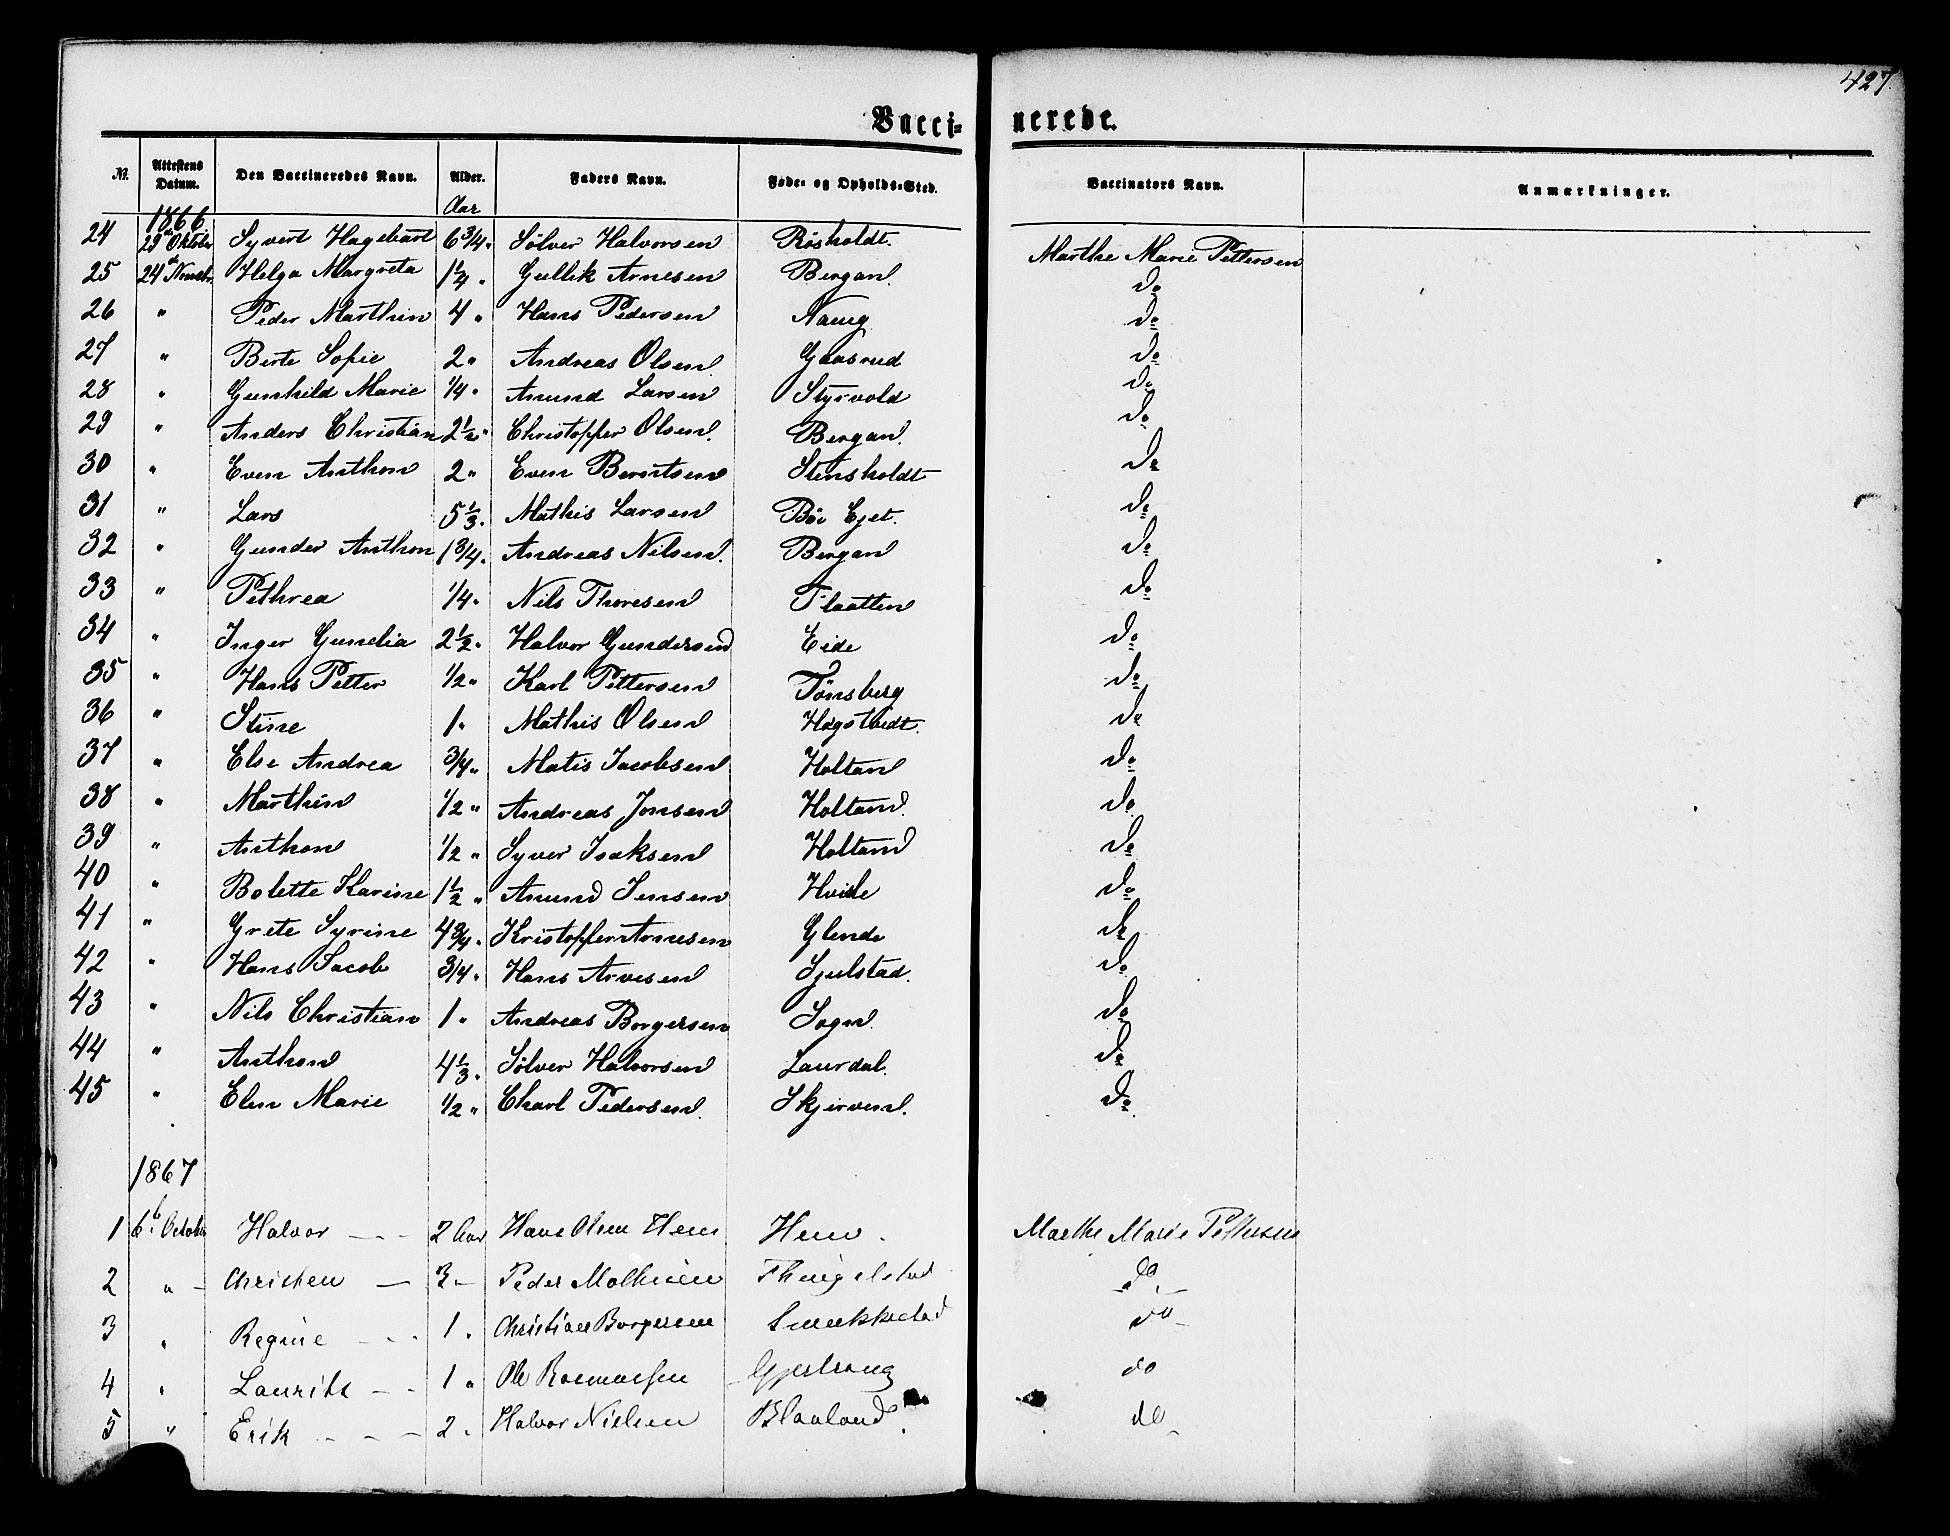 427.
Vacci- nerede.
No. Attestens Datum. Den Vaccineredes Navn. Alder. Faders Navn. Føde- og Opholds-Sted. Vaccinators Navn. Anmærkninger.
Aar
1866
24 29de Oktober Syvert Hagebart 6 3/4 " Sølver Halvorsen Røsholdt. Marthe Marie Pettersen
25 24de Novebr. Helga Margreta 1 1/4 " Gullik Arnesen Bergan. do
26 " Peder Marthin 4 " Hans Pedersen Naug do
27 " Berte Sofie 2 " Andreas Olsen Gaasrud do
28 " Gunhild Marie 1/4 " Amund Larsen Styrvold do
29 " Anders Christian 2 1/2 " Christopfer Olsen. Bergan. do
30 " Even Anthon 2 " Even Berntsen Stensholdt do
31 " Lars 5 1/3 " Mathis Larsen Bøv Ejet. do
32 " Gunder Anthon 1 3/4 " Andreas Nilsen. Bergan do
33 " Pethrea 1/4 " Nils Thoresen Flaatten do
34 " Inger Gunelia 2 1/2 " Halvor Gundersen Eide do
35 " Hans Petter 1/2 " Karl Pettersen Tønsberg do
36 " Stine 1 " Mathis Olsen Hogstvedt. do
37 " Else Andrea 3/4 " Matis Jacobsen Holtan do
38 " Marthin 1/2 " Andreas Jonsen Holtan. do
39 " Anthon 1/2 " Syver Isaksen Holtan do
40 " Bolette Karine 1 1/2 " Amund Jensen Hvile do
41 " Grete Syrine 4 3/4 " Kristopfer Arnesen Glende do
42 " Hans Jacob 3/4 " Hans Arvesen Sjulstad. do
43 " Nils Christian 1 " Andreas Borgersen Sogn. do
44 " Anthon 4 1/3 " Sølver Halvorsen Laurdal. do
45 " Elen Marie 1/2 " Charl Pedersen. Skjerven. do
1867
1 6te October Halvor 2 Aar Hans Olsen Hem Hem Marthe Marie Pettersen
2 " Christen 3 Peder Mathisen do
3 " Regine 1 " Christian Borgersen Smukkestad do
4 " Laurits 1 " Ole Rasmussen Gjerstrang do
5 " Erik 2 " Halvor Nielsen Blaaland. do